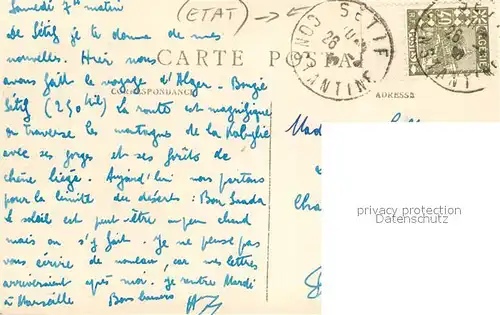 Samedi 7h matin
(ETAT)
De Sétif je te donne de mes
nouvelles. Hier nous
CARTE POSTA
avons fait le voyage d'Alger - Bougie
CORRESPONDANCE
ADRESSE
Sétif (290 kil) la route est magnifique
on traverse les montagnes de la Kabylie
avec ses gorges et ses forêts de
chêne liège. Aujourd'hui nous partons
pour la limite des déserts : Bou Saada
le soleil est peut-être un peu chaud
mais on s'y fait. Je ne pense pas
vous écrire de nouveau, car mes lettres
arriveraient après moi. Je rentre Mardi
à Marseille Bons baisers
SETIF
CONSTANTINE
26
ALGERIE
POSTES
Mad
Cha
privacy protection
Datenschutz